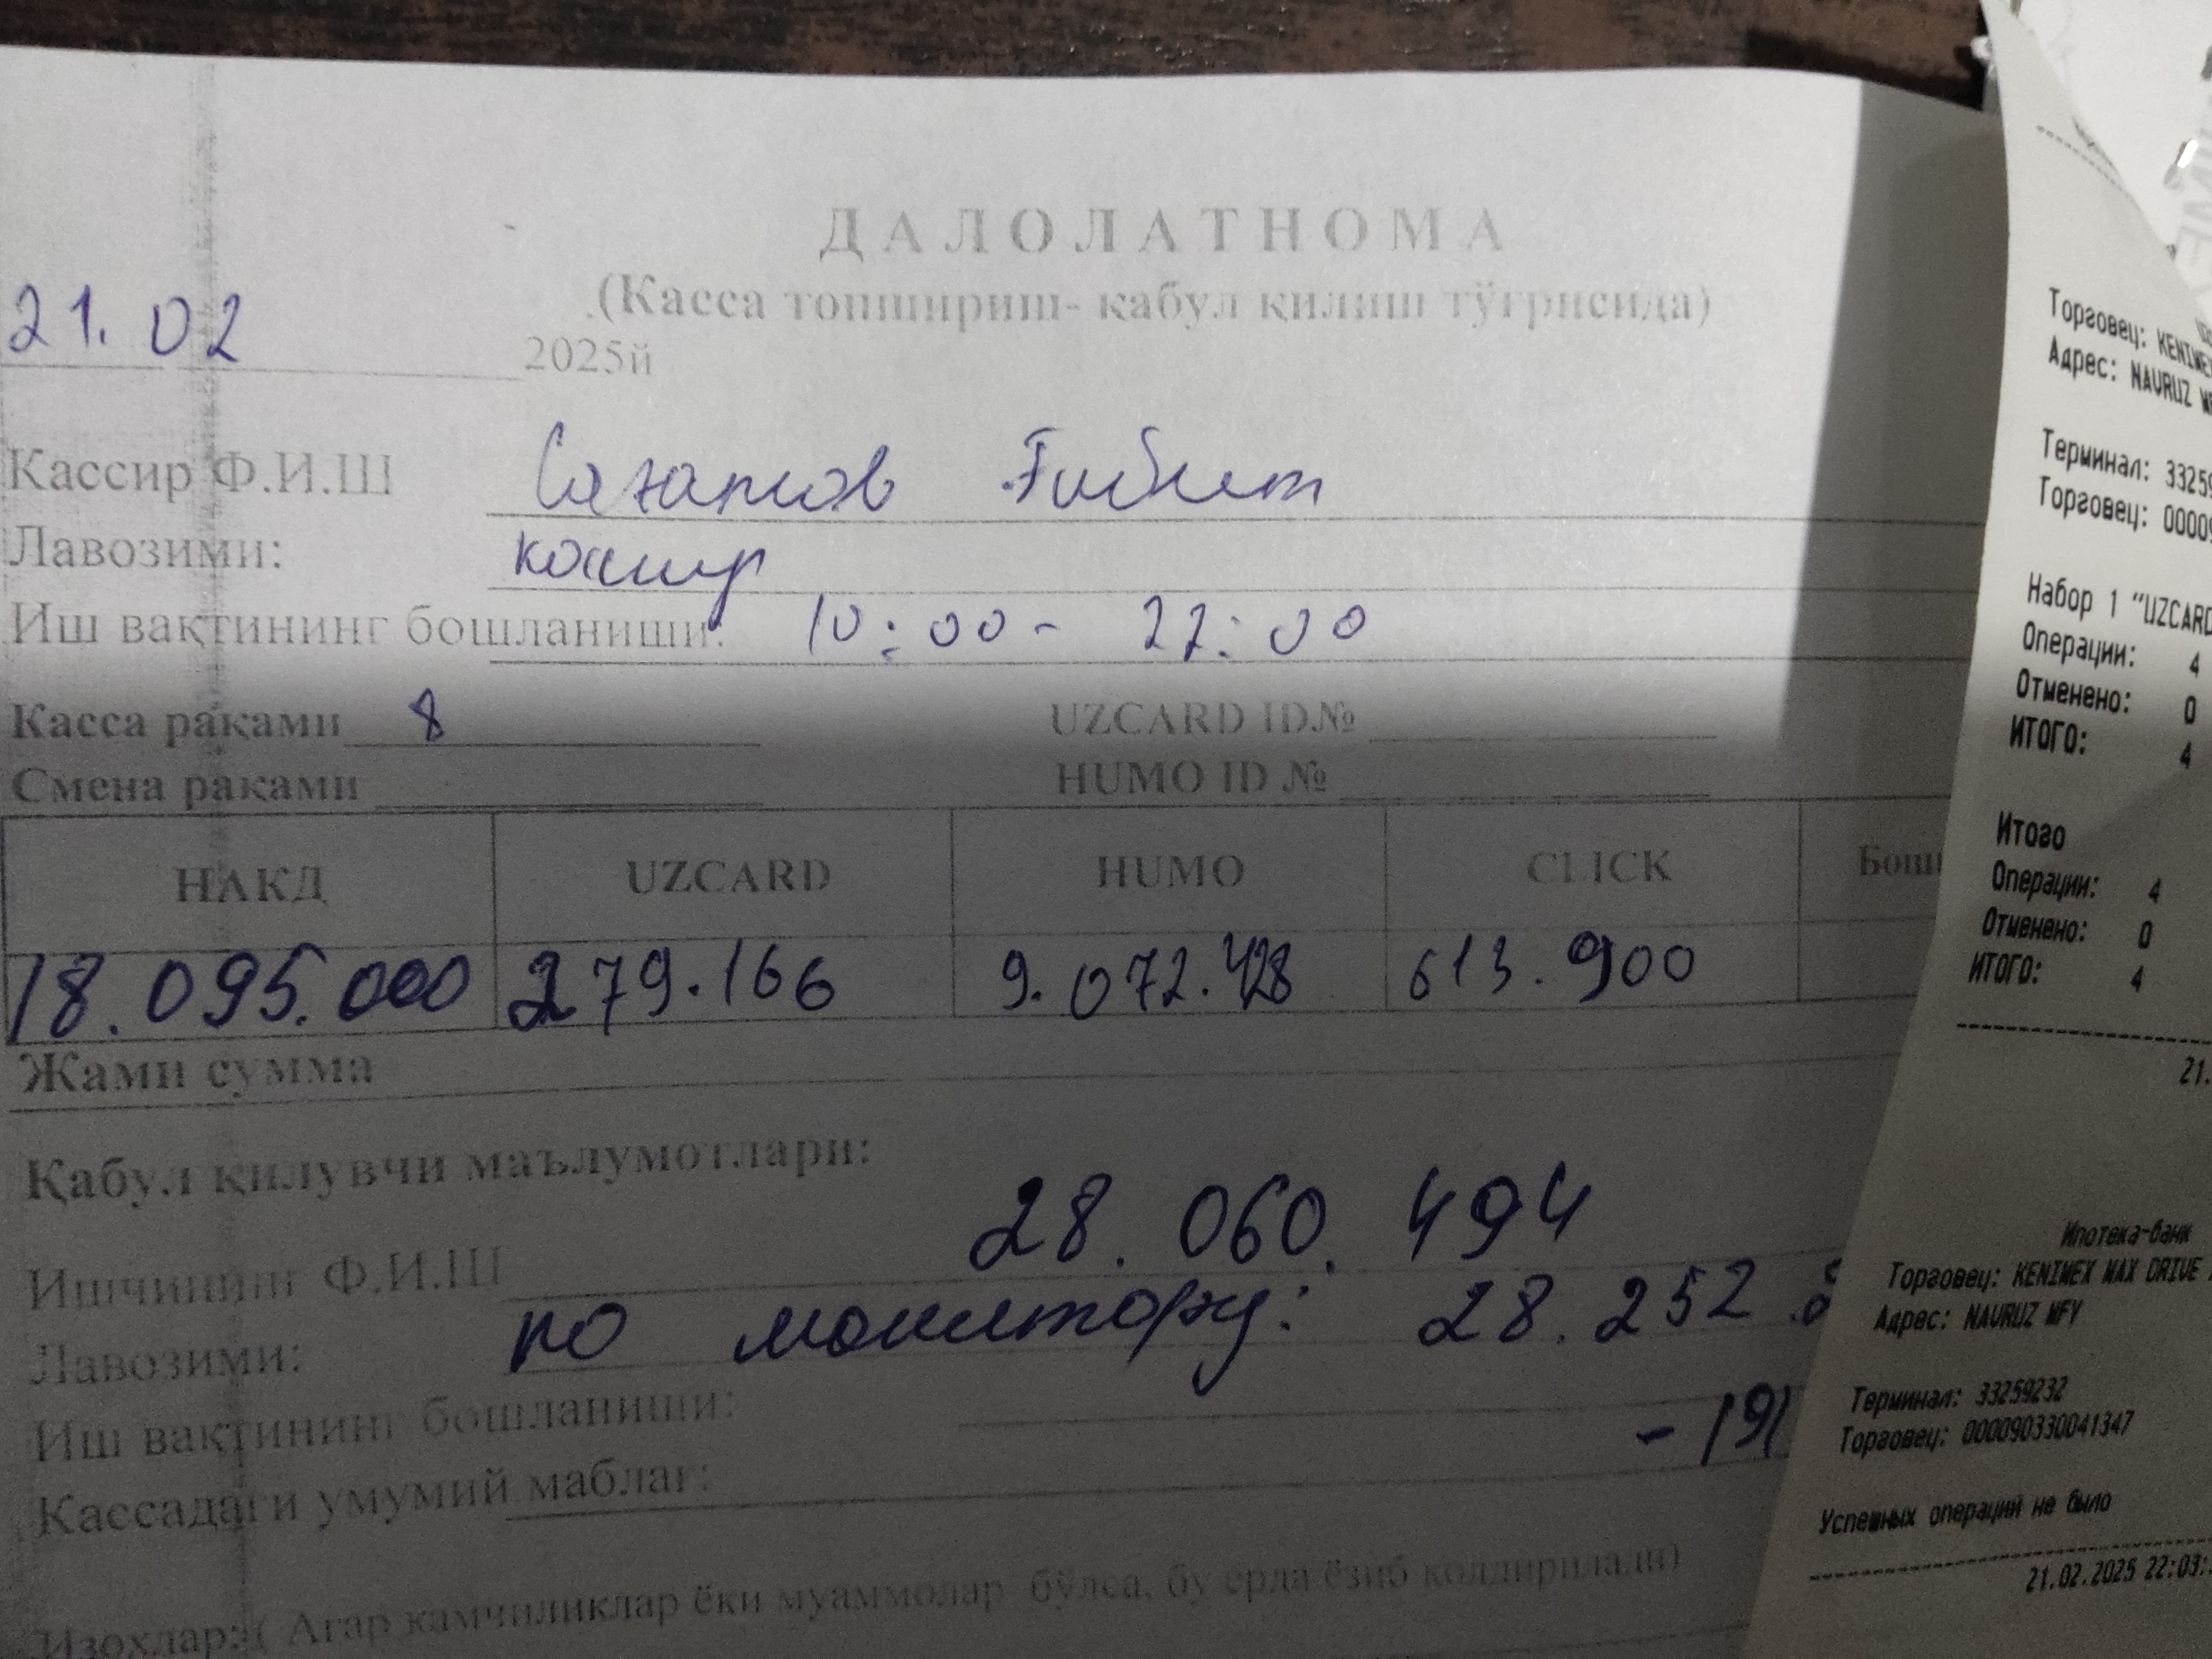 ДАЛОЛАТНОМА
(Касса топшириш- қабул қилиш тўғрисида)
21.02 2025й
Кассир Ф.И.Ш
Лавозими: кассир
Иш вақтининг бошланиши: 10:00 - 22:00
Касса рақами 8 UZCARD ID.№
Смена рақами HUMO ID №
НАКД UZCARD HUMO CLICK
18.095.000 279.166 9.072.428 613.900
Жами сумма
Қабул қилувчи маълумотлари:
28.060.494
Ишчининг Ф.И.Ш
Лавозими: по монитору: 28.252
Иш вақтининг бошланиши: - 191
Кассадаги умумий маблағ:
Изоҳлар:( Агар камчиликлар ёки муаммолар бўлса, бу ерда ёзиб қолдирилади)
Торговец: KENIMEX
Адрес: NAVRUZ
Терминал: 3325
Торговец: 0000
Набор 1 "UZCARD
Операции: 4
Отменено: 0
ИТОГО: 4
Итого
Операции: 4
Отменено: 0
ИТОГО: 4
21.
Ипотека-банк
Торговец: KENIMEX MAX DRIVE
Адрес: NAVRUZ MFY
Терминал: 33259232
Торговец: 000090330041347
Успешных операций не было
21.02.2025 22:03: